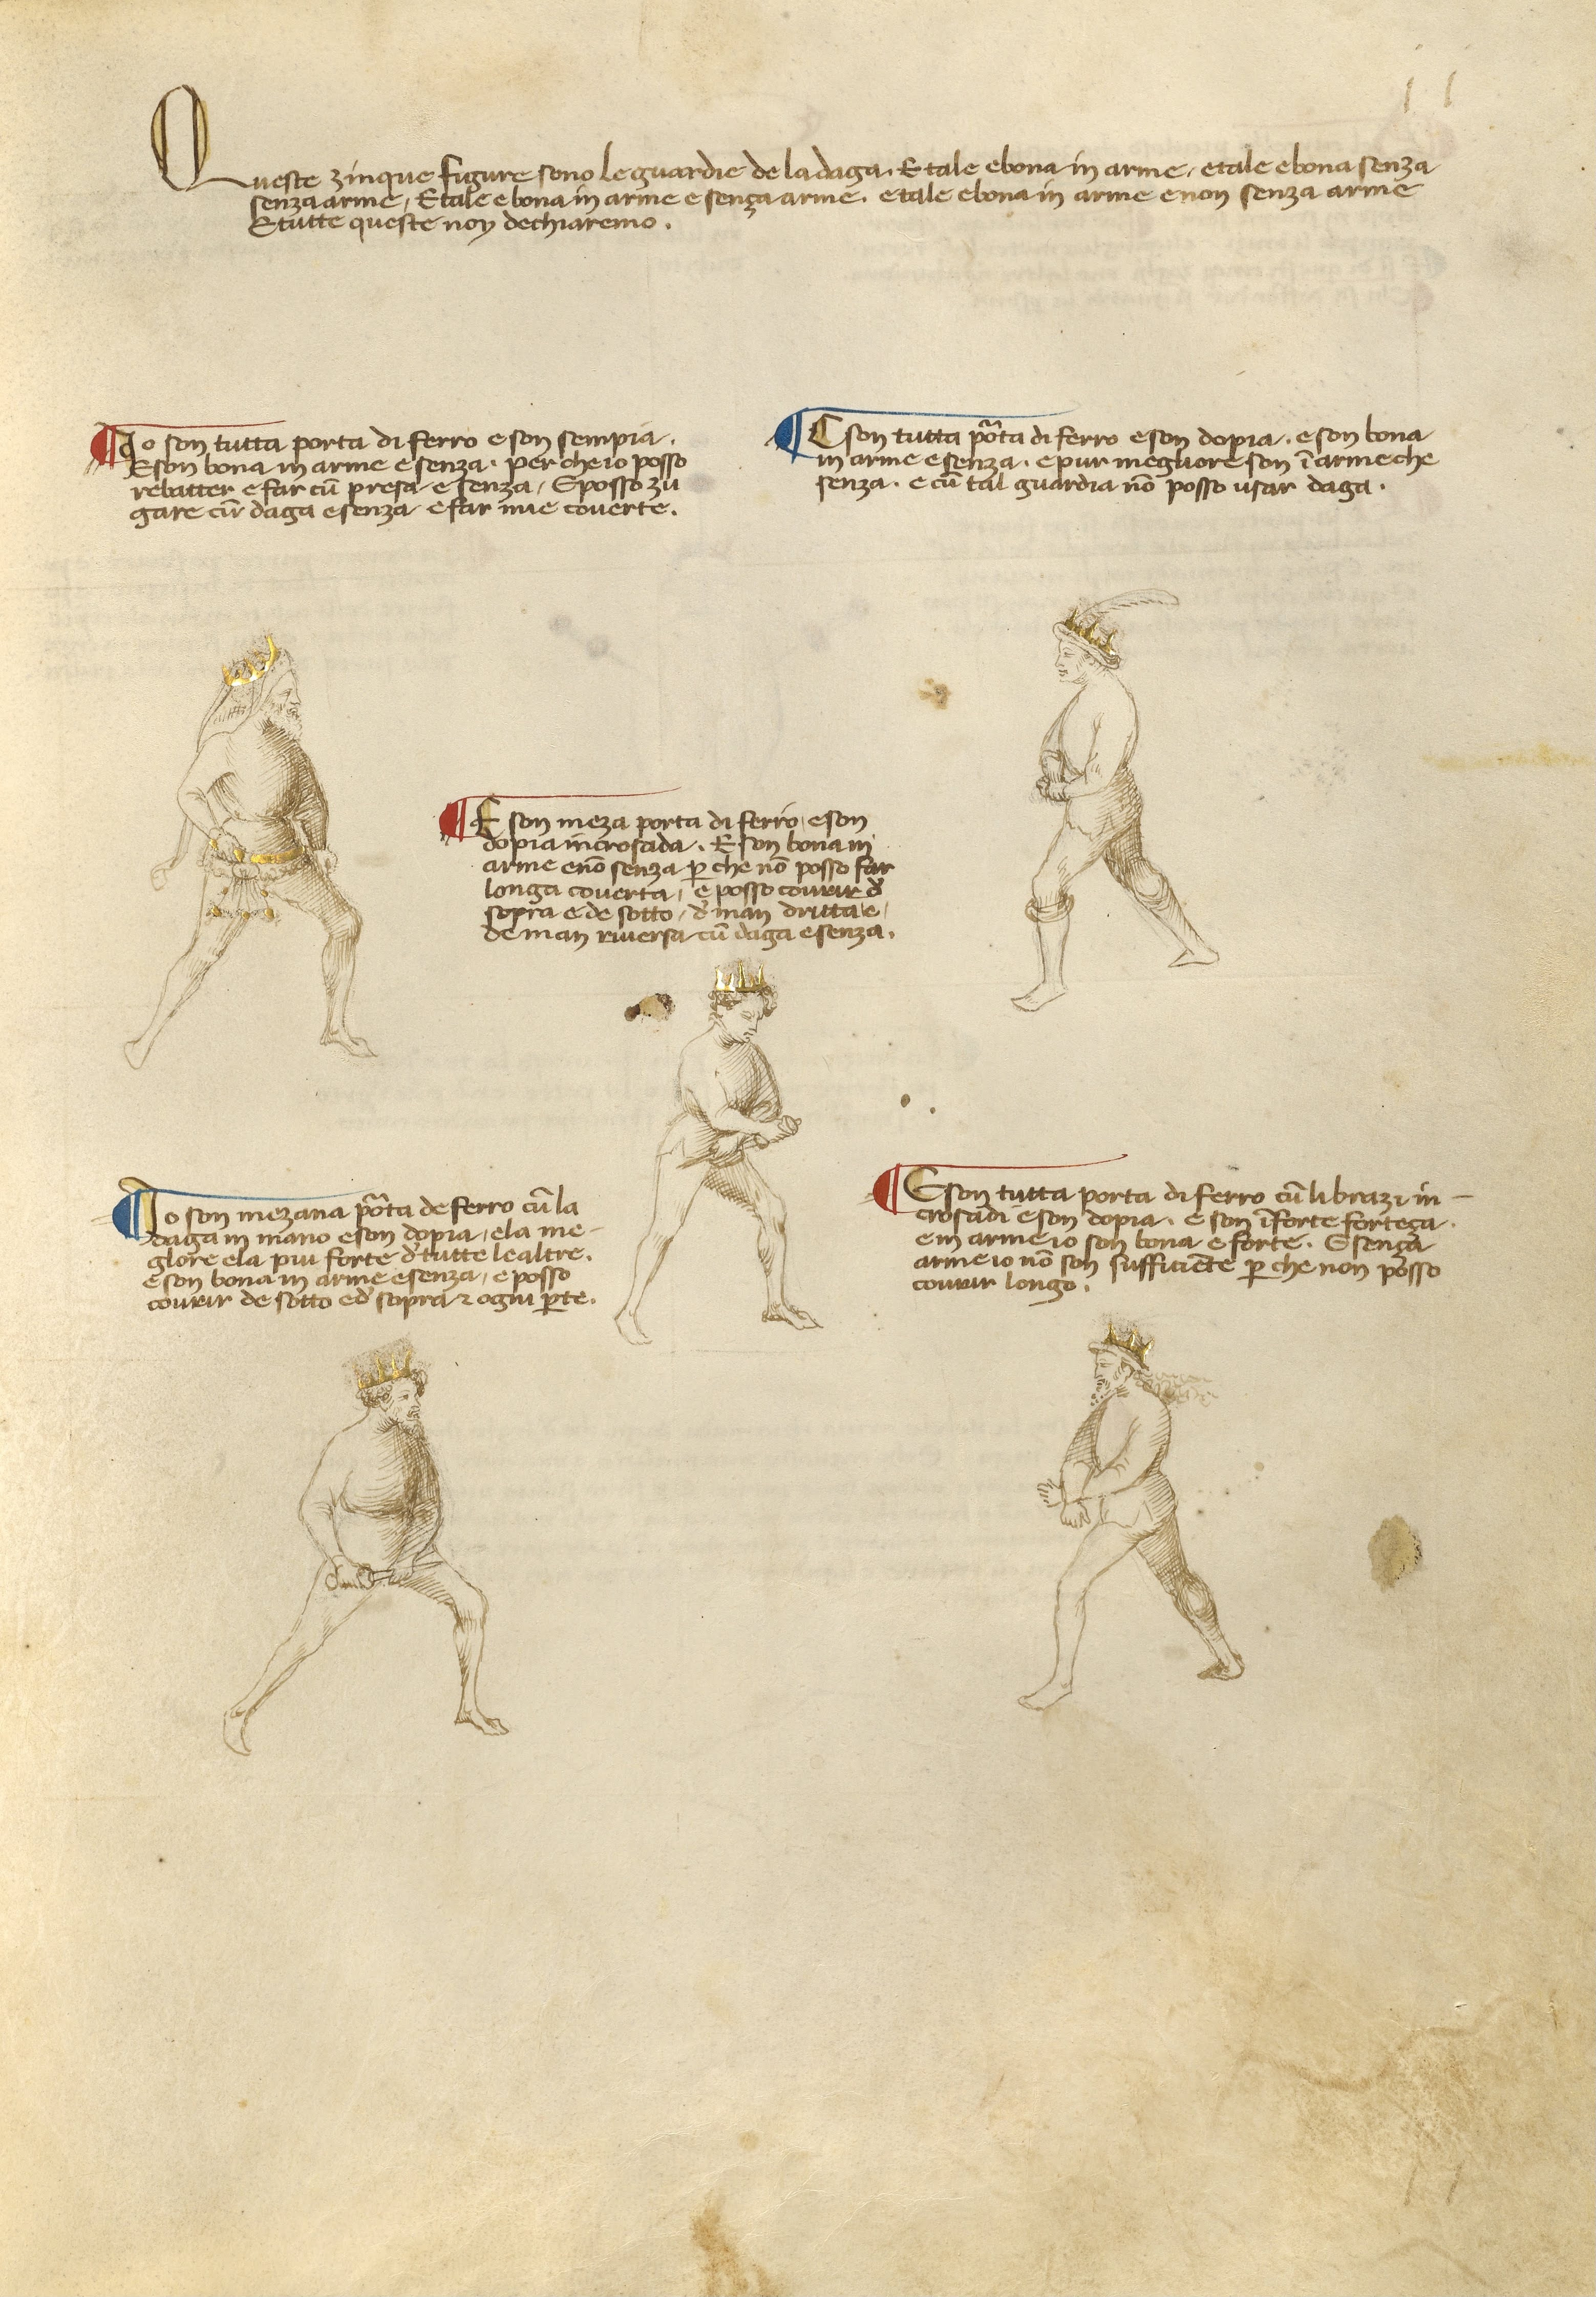 11
Queste zinque figure sono le guardie de la daga. E tale e bona in arme, e tale e bona senza
senza arme, E tale e bona in arme e sença arme. e tale e bona in arme e non senza arme
E tutte queste noy dechiaremo.
Io son tutta porta di ferro e son sempia.
E son bona in arme e senza. per che io posso
rebatter e far cū presa e senza, E posso zu
gare cū daga e senza e far mie coverte.
E son tutta pōta di ferro e son dopia. e son bona
in arme e senza. e pur megliore son ī arme che
senza. e cū tal guardia nō posso usar daga.
E son meza porta di ferro, e son
dopia incrosada. E son bona in
arme e nō senza p che nō posso far
longa coverta, e posso covrir d'
sopra e de sotto, d' man dritta e,
de man riversa cū daga e senza.
Io son mezana pōta de ferro cū la
daga in mano e son dopia, e la me-
glore e la piu forte d' tutte le altre.
e son bona in arme e senza, e posso
covrir de sotto e d' sopra ⁊ ogni pte.
E son tutta porta di ferro cū li brazi in-
crosadi e son dopia. e son ī forte forteça.
e in arme io son bona e forte. E sença
arme io nō son sufficiēte p che non posso
covrir longo.